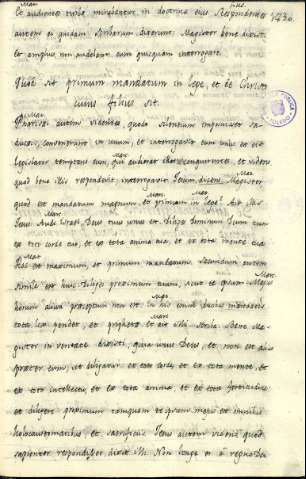 Mar
et audientes turba mirabantur in doctrina eius Respondentes Luc
autem ei quidam scribarum dixerunt, Magister bene dixisti
et amplius non audebant eum quicquam interrogare
Quod sit primum mandatum in lege, et de Christo
cuius filius sit.
Mat
Pharisei autem videntes quod silentium imposuisset sa-
duceis, convenerunt in unum, et interrogavit eum unus ex eis
legisdoctor temptans eum, qui audierat illos conquirentes et videns
Mar
quod bene illis responderit interrogavit Iesum dicens, Magister
quod est mandatum magnum et primum in lege? Ait illi
Mar
Iesus Audi Israel Deus tuus unus est diliges dominum Deum tuum
ex toto corde tuo, et ex tota anima tua, et ex tota mente tua
Hoc est maximum, et primum mandatum. Secundum autem
simile est huic diliges proximum tuum, sicut te ipsum Maius
horum aliud praeceptum non est In his enim duobus mandatis
Mar
tota lex pendet, et prophetae et ait illi scriba, Bene Ma-
gister in veritate dixisti, quia unus Deus, et non est alius
praeter eum, et diligatur ex toto corde, et ex tota mente, et
ex toto intellectu, et ex tota anima, et ex tota fortitudine
et diligere proximum tamquam se ipsum maius est omnibus
holocaustomatibus, et sacrificiis Iesus autem videns quod
sapienter respondisset dixit illi Non longe es a regno Dei